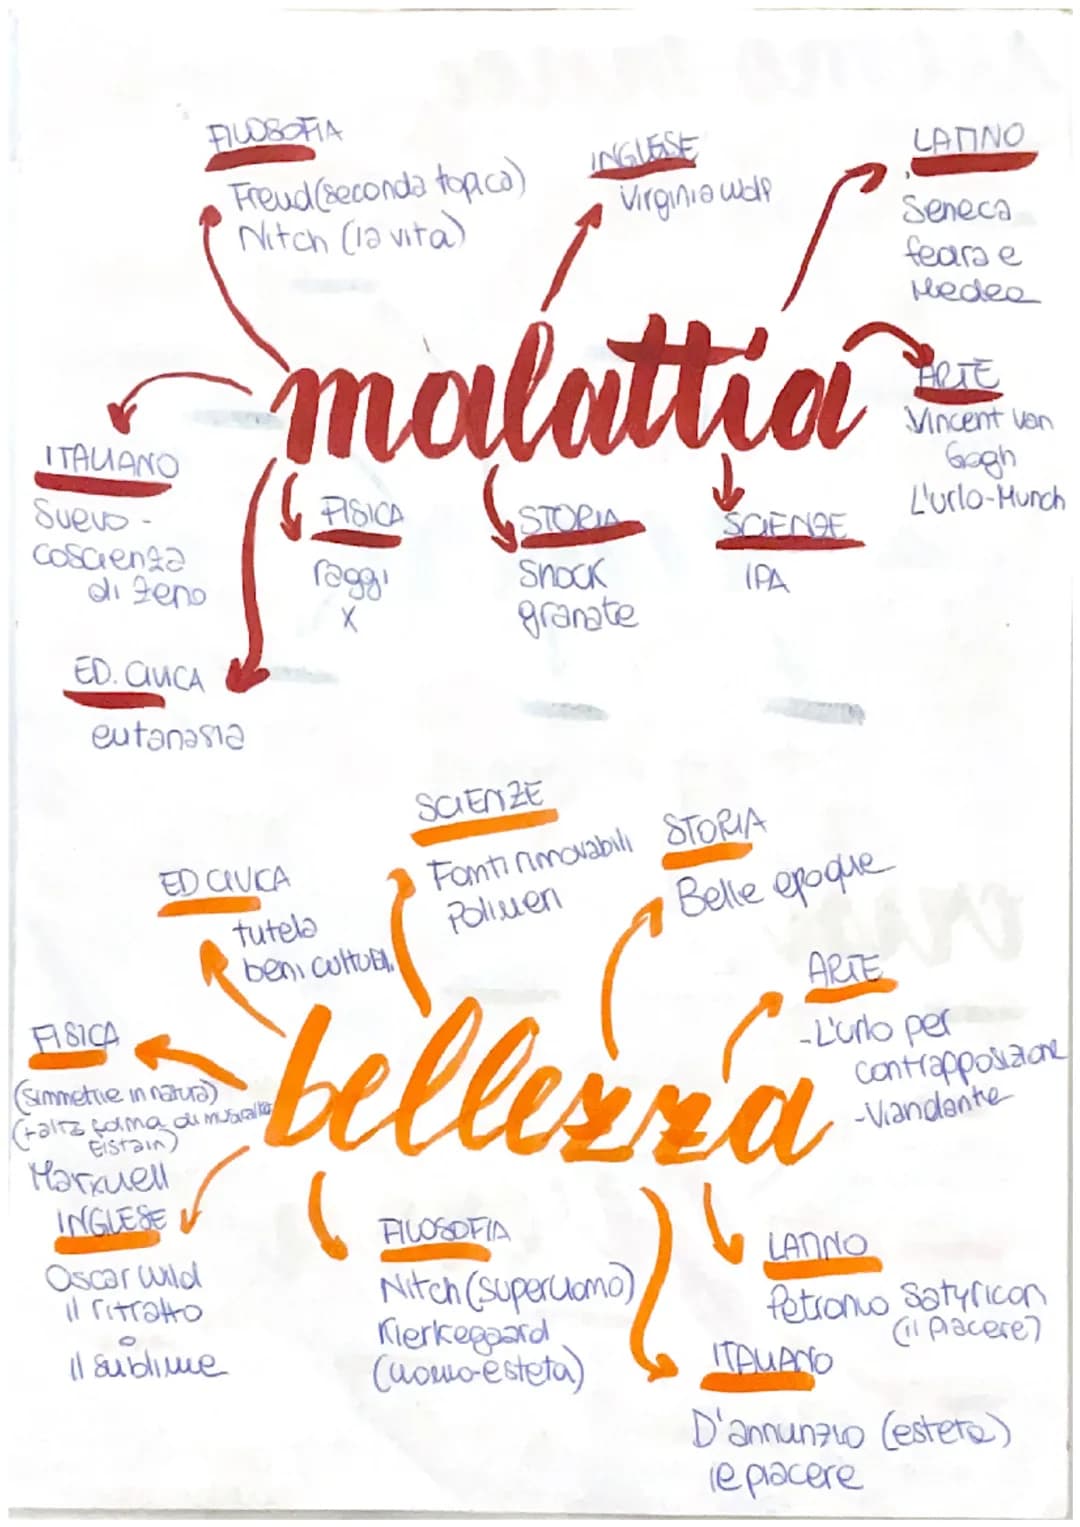 FILOSOFIA
Freud (seconda topica)
Nitch (la vita)
INGLESE
Virginia wolf
LATINO
Seneca
feara e
Medea
malattia
ARTE
Vincent van
Gogh
L'urlo-Munch
ITALIANO
Svevo -
coscienza
di Zeno
FISICA
raggi
X
STORIA
Shock
granate
SCIENZE
IPA
ED. CIVICA
eutanasia
SCIENZE
Fonti rinnovabili
Polimeri
STORIA
Belle epoque
ED CIVICA
tutela
beni culturali
ARTE
-L'urlo per
contrapposizione
-Viandante
FISICA
(simmetrie in natura)
Maxwell
bellezza
INGLESE
Oscar Wild
il ritratto
o
il sublime
FILOSOFIA
Nitch (superuomo)
Kierkegaard
(uomo-esteta)
LATINO
Petronio Satyricon
(il piacere)
ITALIANO
D'annunzio (esteta)
le piacere